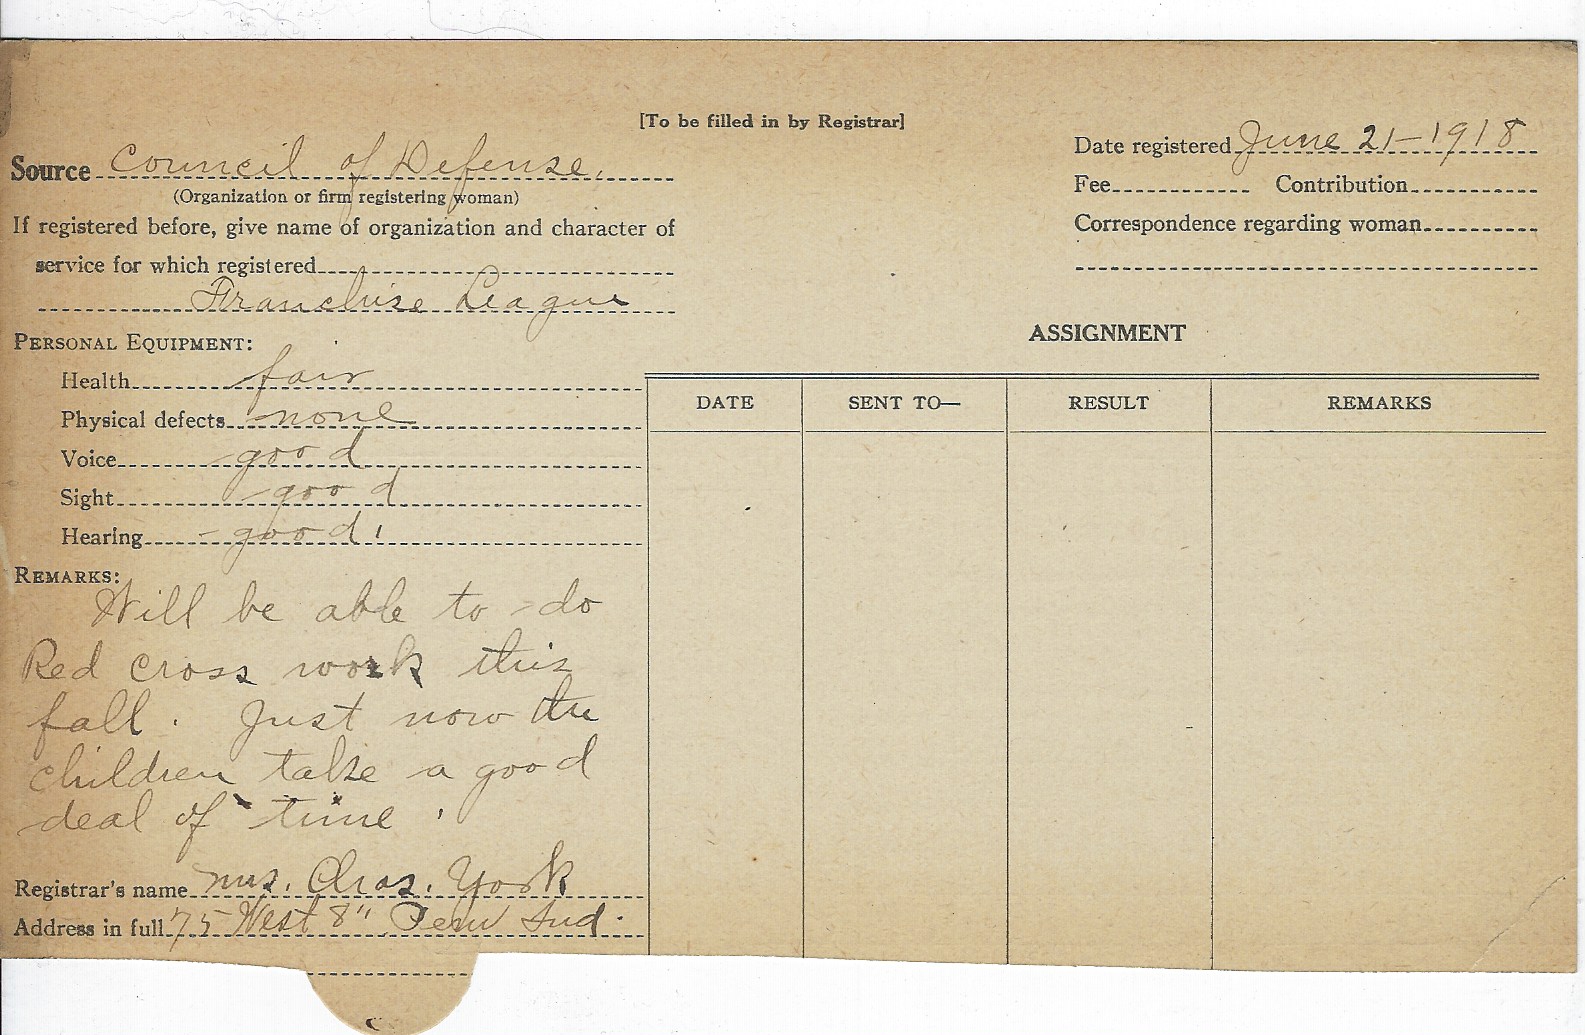 [To be filled in by Registrar]
Source Council of Defense.
(Organization or firm registering woman)
If registered before, give name of organization and character of
service for which registered
Franchise League
PERSONAL EQUIPMENT:
Health fair
Physical defects none
Voice good
Sight good
Hearing good
REMARKS:
Will be able to do
Red cross work this
fall. Just now the
children take a good
deal of time.
Registrar's name Mrs. Chas. York
Address in full 75 West 8" Peru Ind.
Date registered June 21-1918
Fee Contribution
Correspondence regarding woman
ASSIGNMENT
DATE SENT TO— RESULT REMARKS